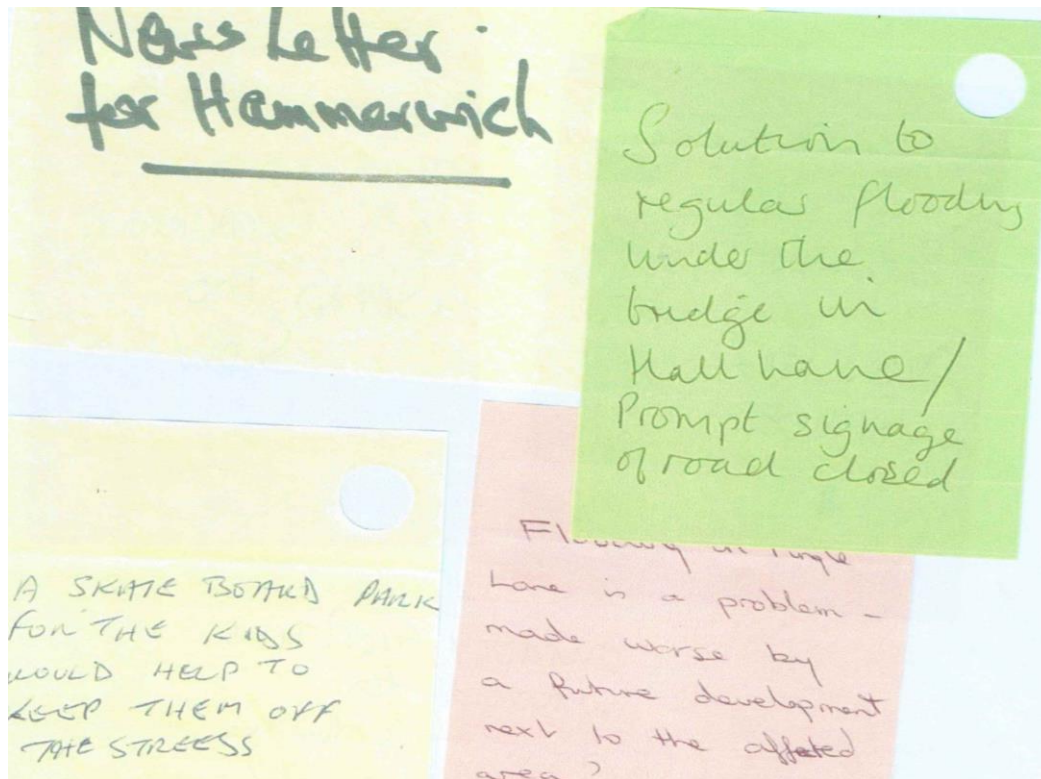 News Letter
for Hammerwich
Solution to
regular flooding
under the
bridge in
Hall Lane/
Prompt signage
of road closed
A SKATE BOARD PARK
FOR THE KIDS
WOULD HELP TO
KEEP THEM OFF
THE STREESS
Flooding in
Lane is a problem -
made worse by
a future development
next to the affected
area?